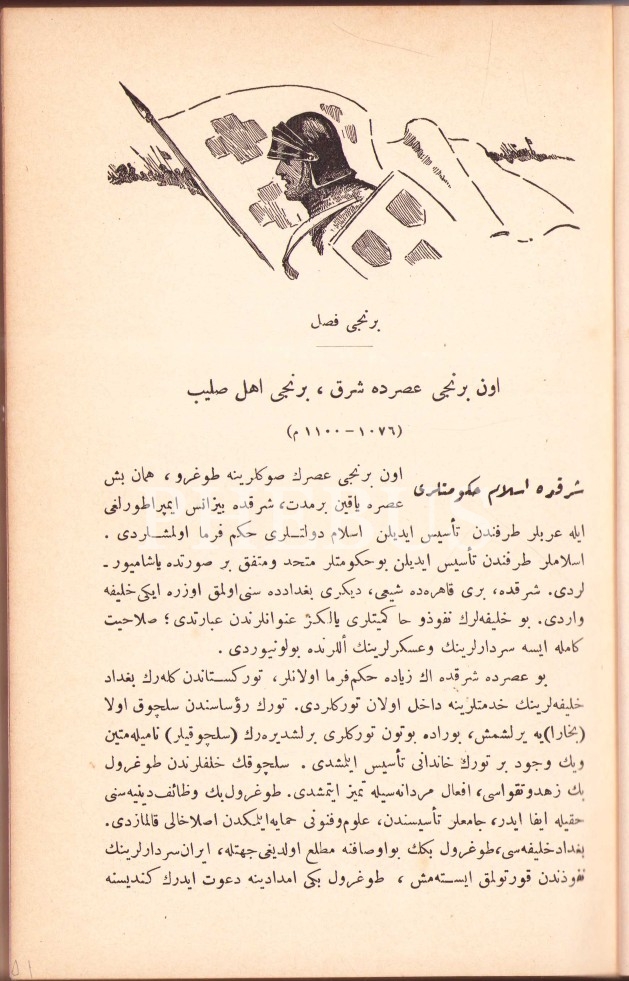 برنجی فصل
اون برنجی عصرده شرق ، برنجی اهل صلیب
(١٠٧٦ – ١١٠٠ م)
شرقده اسلام حكومتلری
اون برنجی عصرك صوكلرینه طوغرو ، همان بش
عصره یاقین برمدت، شرقده بیزانس ایمپراطورلغی
ایله عربلر طرفندن تأسیس ایدیلن اسلام دولتلری حكم فرما اولمشلردی .
اسلاملر طرفندن تأسیس ایدیلن بوحكومتلر متحد ومتفق بر صورتده یاشامیور -
لردی. شرقده، بری قاهره‌ده شیعی، دیكری بغدادده سنی اولمق اوزره ایكی خلیفه
واردی. بو خلیفه‌لرك نفوذو حاكمیتلری یالكز عنوانلرندن عبارتدی؛ صلاحیت
كامله ایسه سردارلرینك وعسكرلرینك أللرنده بولونیوردی .
بو عصرده شرقده اك زیاده حكم‌فرما اولانلر، توركستاندن كله‌رك بغداد
خلیفه‌لرینك خدمتلرینه داخل اولان توركلردی. تورك رؤساسندن سلجوق اولا
(بخارا)یه یرلشمش، بوراده بوتون توركلری برلشدیره‌رك (سلجوقیلر) نامیله متین
ویك وجود بر تورك خاندانی تأسیس ایلمشدی . سلجوقك خلفلرندن طوغرول
بك زهدوتقواسی، افعال مردانه‌سیله تمیز ایتمشدی. طوغرول بك وظائف دینیه‌سنی
حقیله ایفا ایدر، جامعلر تأسیسندن، علوم وفنونی حمایه ایلمكدن اصلا خالی قالمازدی.
بغداد خلیفه‌سی، طوغرول بكك بو اوصافنه مطلع اولدیغی جهتله، ایران سردارلرینك
نفوذندن قورتولمق ایسته‌مش ، طوغرول بكی امدادینه دعوت ایدرك كندیسنه